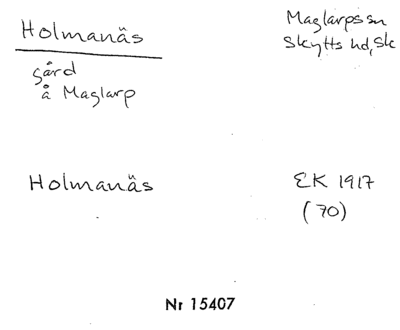 Holmanäs
Maglarps sn
Skytts hd, Sk
gård
å Maglarp
Holmanäs
EK 1917
(70)
Nr 15407